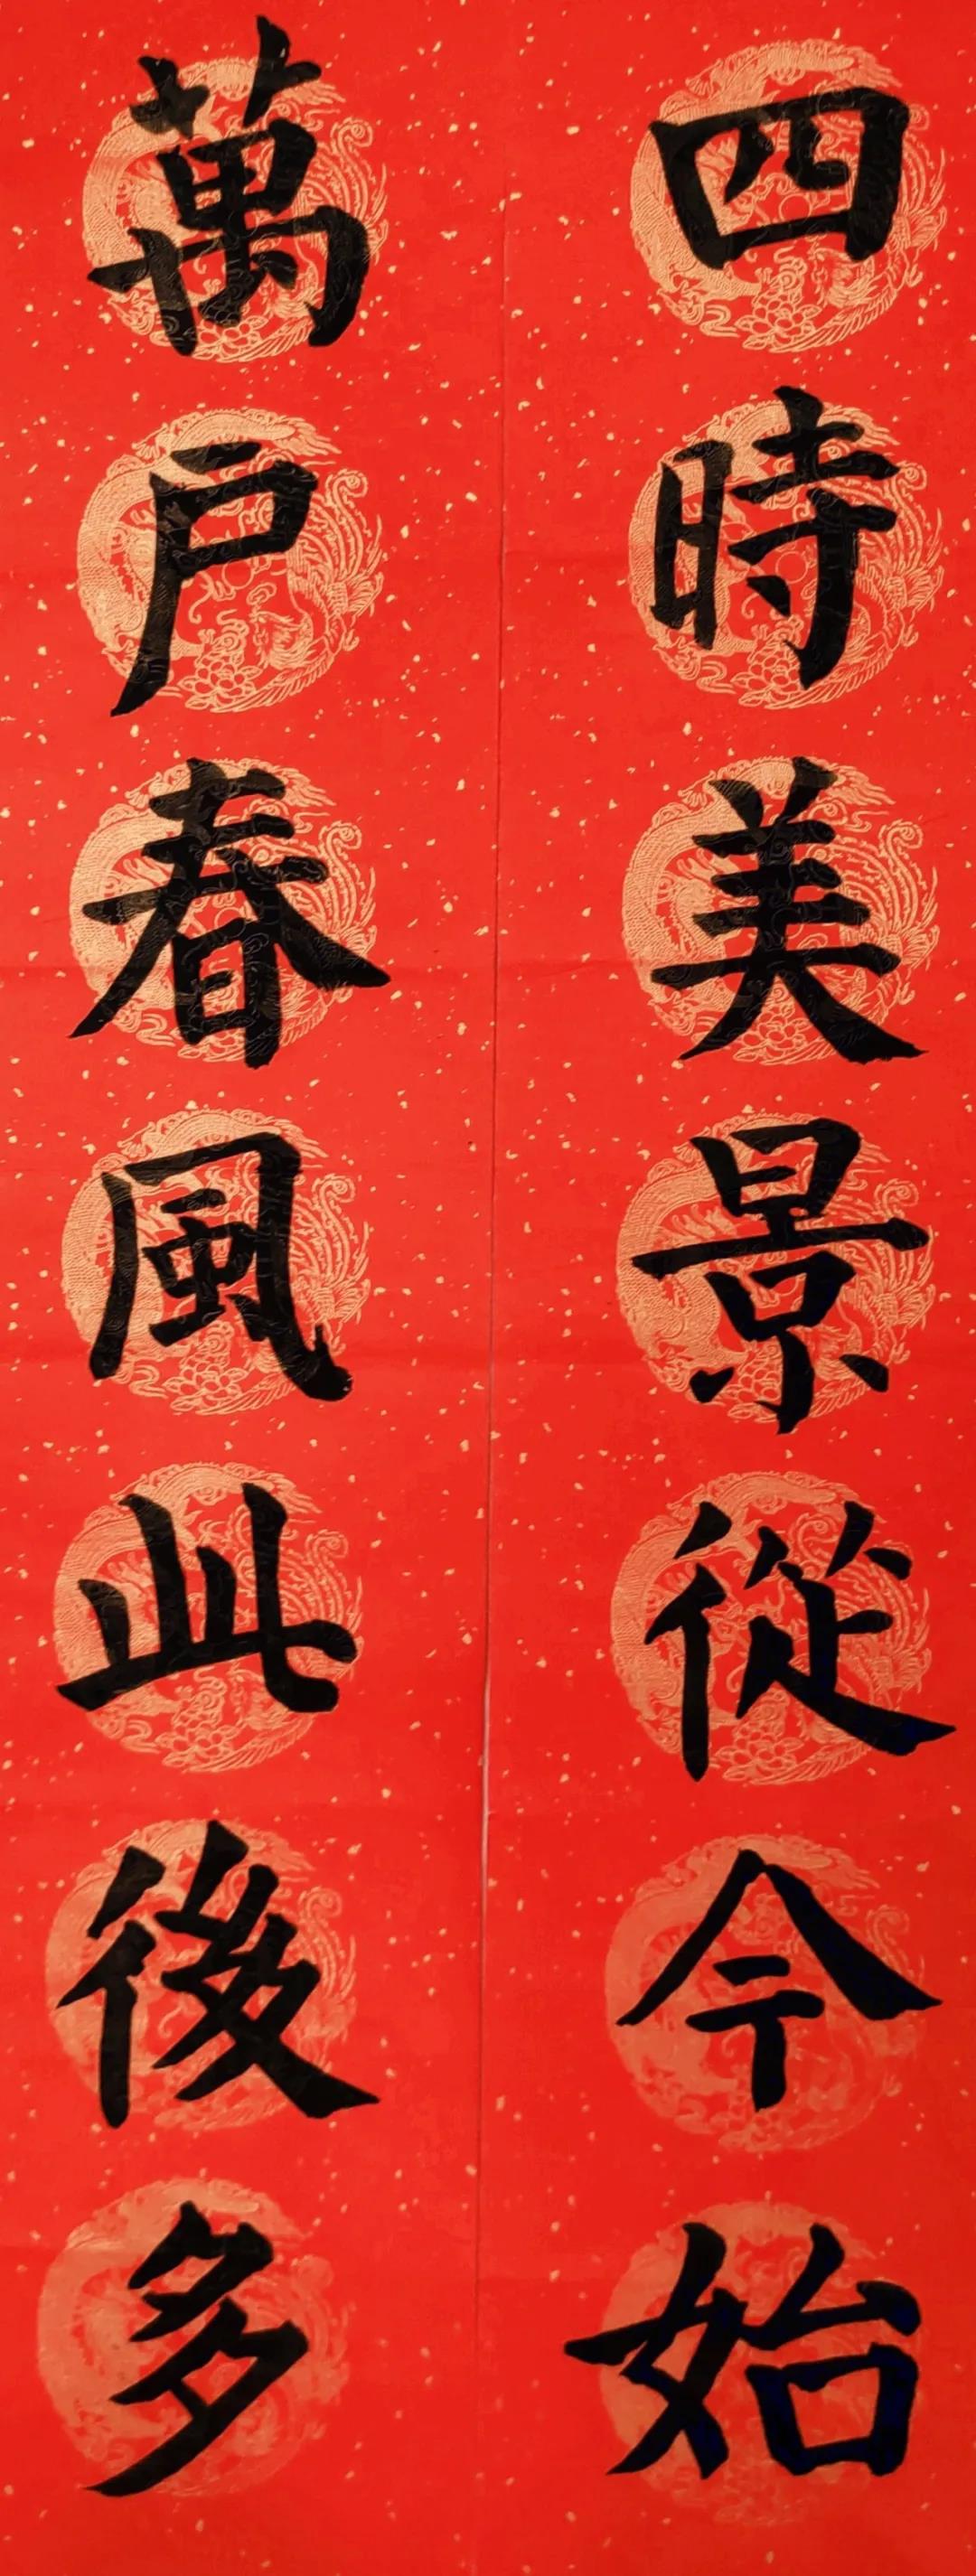 四時美景從今始
萬戶春風此後多